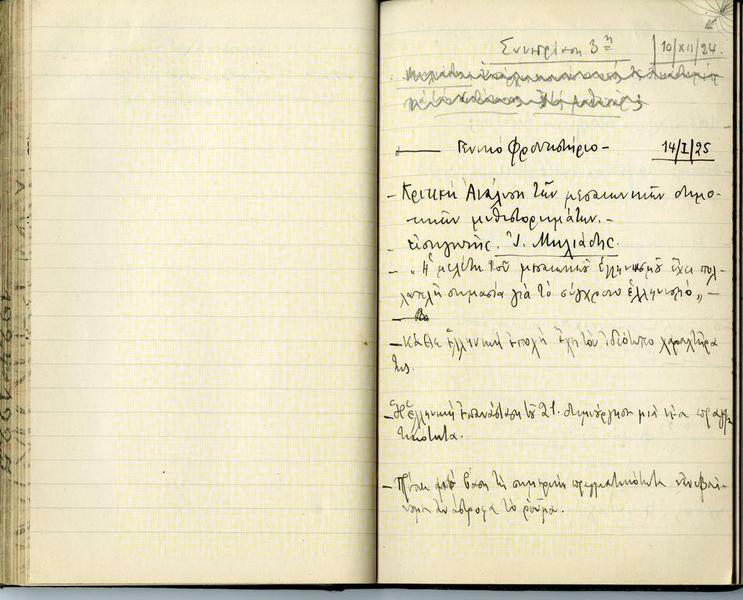 Συνεδρίαση 3η 10/XII/24.
Γενικό Φροντιστήριο – 14/I/25
– Κριτική Ἀνάλυση τῶν μεσαιωνικῶν δημο-
τικῶν μυθιστορημάτων. –
– εἰσηγητής. Ἰ. Μηλιάδης.
– „Ἡ μελέτη τοῦ μεσαιωνικοῦ ἑλληνισμοῦ ἔχει πολ-
λαπλῆ σημασία γιὰ τὸ σύγχρονο ἑλληνισμό„ –
– Κάθε ἑλληνική ἐποχή ἔχει τὸν ἰδιότυπο χαρακτήρα
της.
– Ἡ ἑλληνική ἐπανάσταση τοῦ 21. δημιούργησε μιὰ νέα πραγμα
τικότητα.
– βάση τὴ σημερινή πραγματικότητα
τὸ ρεῦμα.